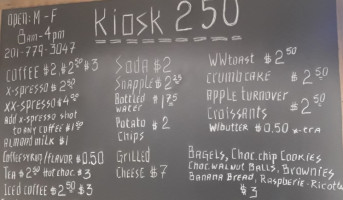 OPEN: M - F
Kiosk 250
8am-4pm
201-779-3047
COFFEE $2, $2.50 $3
X-SPRESSO $2.50
XX-SPRESSO $4.00
Add X-SPRESSO shot
to any coffee $1
Almond milk $1
Coffee syrup/flavor $0.50
Tea $2.00 Hot choc. $3
Iced coffee $2.50 $3
Soda $2
Snapple $2.25
Bottled
water
Potato $2
Chips
Grilled
Cheese $7
WWtoast $2.50
Crumb cake $2.50
Apple turnover
Croissants $2.50
W/butter $0.50 x-tra
Bagels, Choc.chip Cookies
Choc.walnut Balls, Brownies
Banana Bread, Raspberie-Ricotta
$3